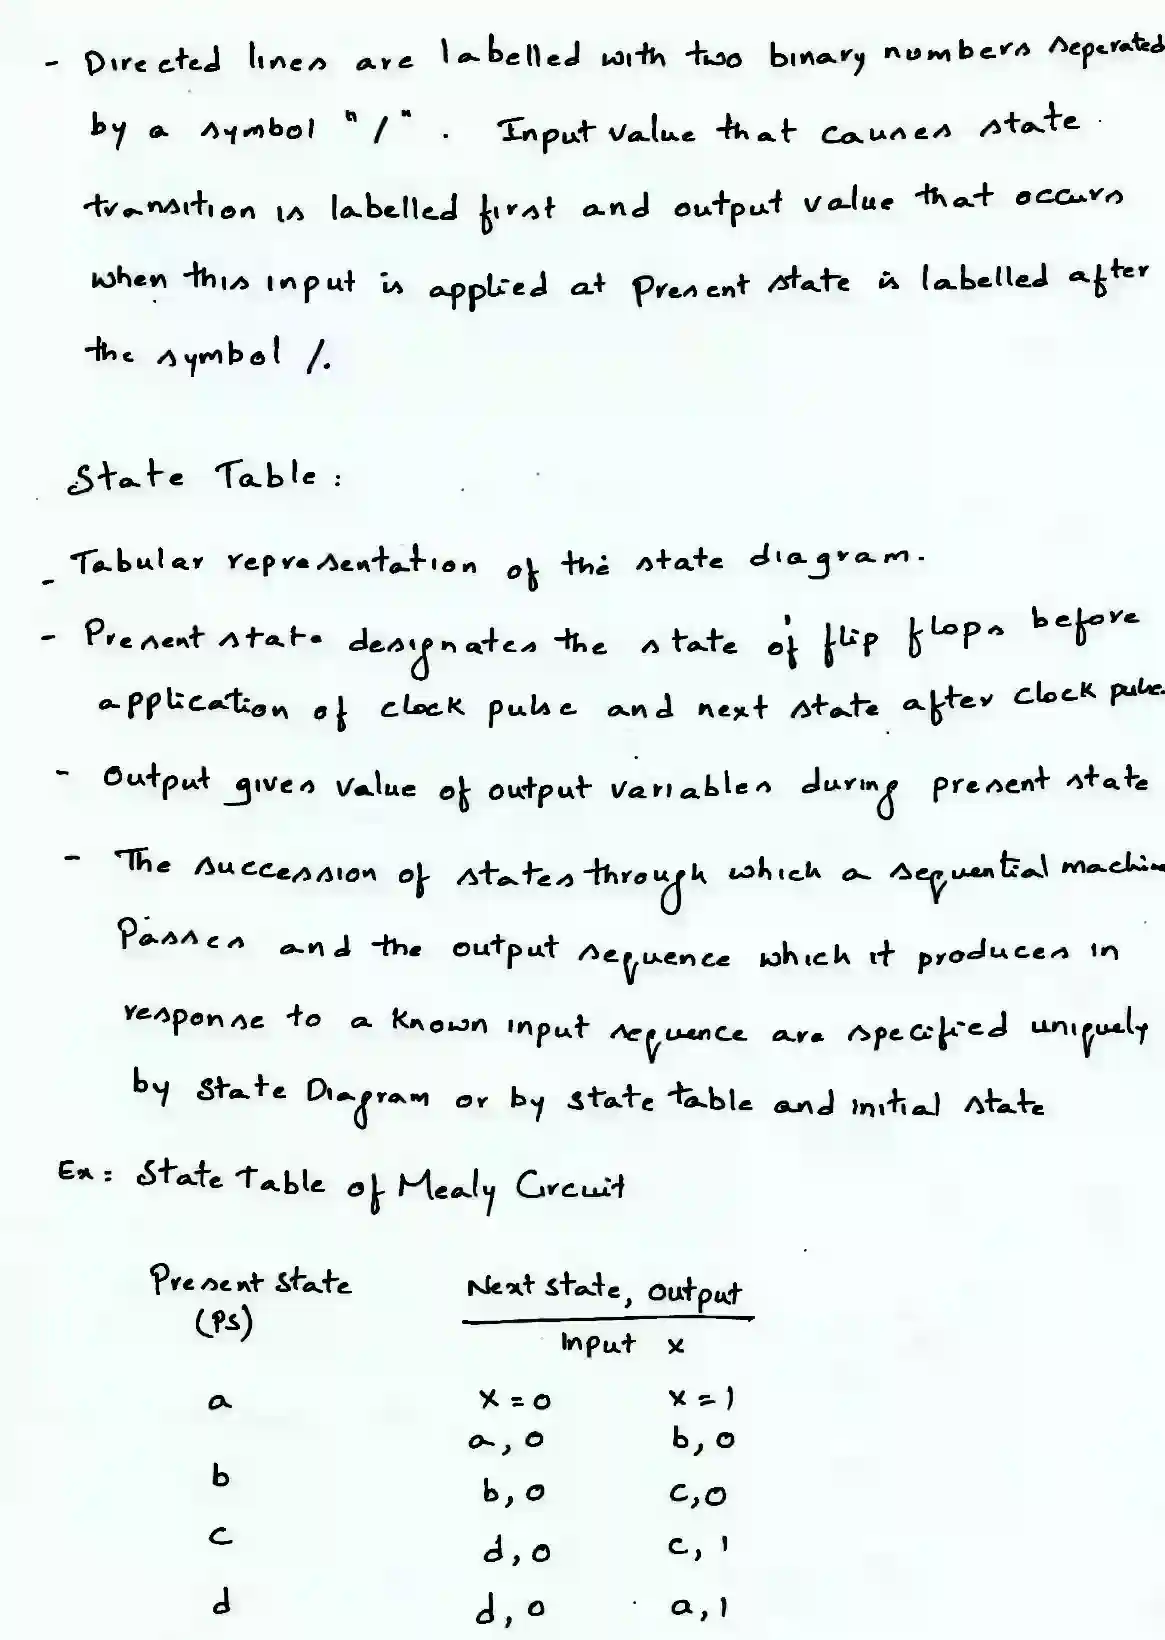 - Directed lines are labelled with two binary numbers seperated
by a symbol "/". Input value that causes state
transition is labelled first and output value that occurs
when this input is applied at present state is labelled after
the symbol /.
State Table:
- Tabular representation of the state diagram.
- Present state designates the state of flip flops before
application of clock pulse and next state after clock pulse
- Output gives value of output variables during present state
- The succession of states through which a sequential machine
Passes and the output sequence which it produces in
response to a known input sequence are specified uniquely
by State Diagram or by state table and initial state
Ex: State Table of Mealy Circuit
Present State Next state, output
(PS) Input x
a x=0 x=1
a, 0 b, 0
b b, 0 c, 0
c d, 0 c, 1
d d, 0 a, 1